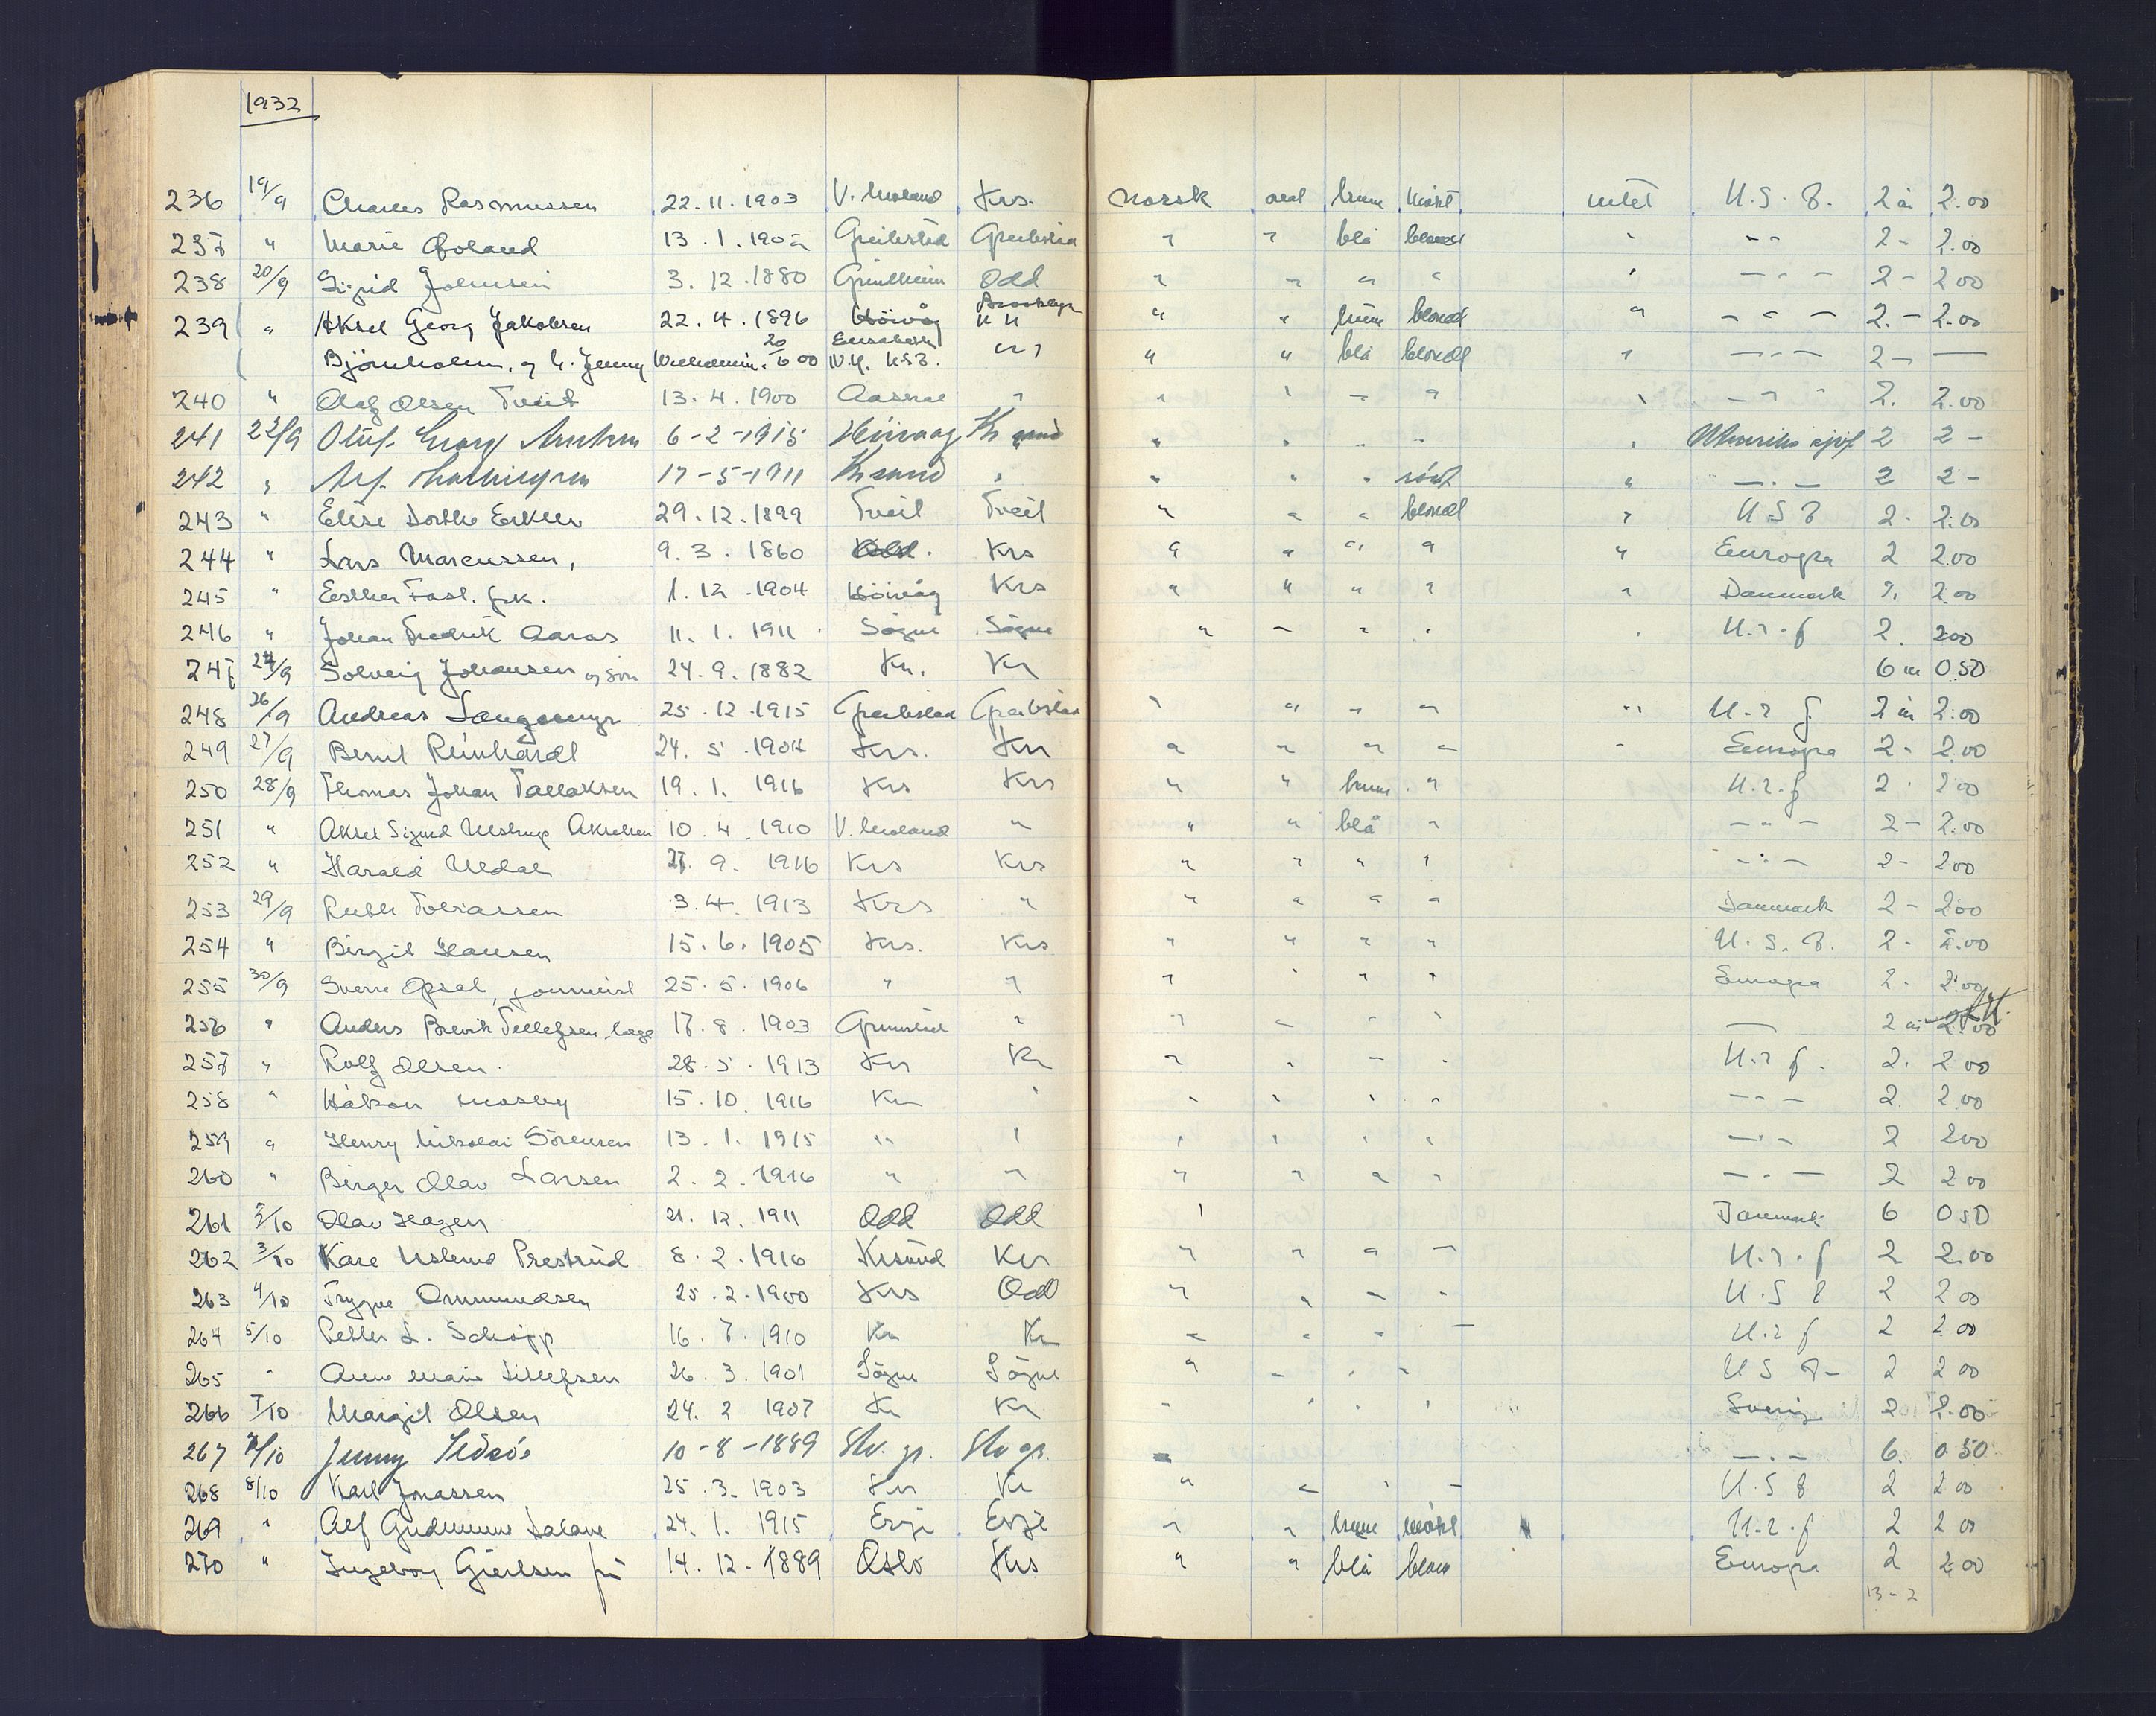 1932
236 19/9 Charles Rasmussen 22.11.1903 V. Moland Krs. Norsk oval brune mørkt intet U.S.A. 2 år 2.00
237 " Marie 13.1.190 Greibstad Greibstad " " blå blondt " - - 2 - 2.00
238 20/9 Sigrid Johnsen 3.12.1880 Grindheim Odd " " " " " - " - 2 - 2 00
239 " Aksel Georg Jakobsen 22.4.1896 Høivåg Brooklyn N.Y. " " brune blondt " - " - 2. - 2.00
Bjørnholm, og h. Jenny Wilhelmin. 20/6 00 Elisabeth N.Y. USA. " " " " blå blondt " - " - 2 - —
240 " Olaf Olsen Tveit 13.4.1900 Aaseral " " " " " " - " - 2. 2.00
241 22/9 Oluf Georg 6-2-1915 Høivaag Kr sand " " " " " Utenriks sjøf 2 2 -
242 " Arf. 17-5-1911 Krsand " " " " rødt " - . - 2 2 -
243 " Elise Dorthe 29.12.1899 Tveit Tveit " " " blondt " U S A 2 - 2.00
244 " Lars Marcussen, 9.3.1860 Odd. Krs " " " " " Europa 2 2.00
245 " Esther Fast. frk. 1.12.1904 Høivåg Krs " " " " " Danmark 2. 2.00
246 " Johan Fredrik Aaros 11.1.1911 Søgne Søgne " " " " " U.r.f 2. 200
247 24/9 Solveig Johansen og søn 24.9.1882 Kr. Kr 6 m 0.50
248 26/9 Andreas Langemyr 25.12.1915 Greibstad Greibstad " " " " " U.r f. 2 år 2.00
249 27/9 Bernt Reinhardt 24.5.1904 Krs. Krs " " " " " Europa 2 - 2.00
250 28/9 Thomas Johan Tallaksen 19.1.1916 Krs Krs " " brune " U.r.f 2 - 2 00
251 " Aksel Sigurd Akselsen 10.4.1910 V. Moland " " " blå " - " - 2 - 2.00
252 " Harald Uldal 27.9.1916 Krs Krs " " " " - " - 2 - 200
253 29/9 Ruth Tobiassen 3.4.1913 Krs " " " " " Danmark 2 - 2.00
254 " Birgit Hansen 15.6.1905 Krs. Krs " " " " U.S.A. 2 - 2.00
255 30/9 Sverre Opsal, journalist 25.5.1906 " " " " " " Europa 2 - 2.00
256 " Anders Brevik Tellefsen, læge 17.8.1903 Grimstad " " " " " — 2 år 2.00
257 " Rolf Olsen. 28.5.1913 Kr Kr " " " " U.r f. 2. 2 00
258 " Håkon Mosby 15.10.1916 Kr " " " " " - " - 2 2.00
259 " Henry Nikolai Sørensen 13.1.1915 " " " " " " - " - 2 200
260 " Birger Olav Larsen 2.2.1916 " " " " " " - " - 2 2 00
261 /10 Olav Hagen 21.12.1911 Odd Odd " Danmark 6 0 50
262 3/10 Kåre Prestrud 8.2.1916 Krsand Kr " " " " U.r.f 2 2.00
263 4/10 Trygve Ommundsen 25.2.1900 Krs Odd " " " " U.S A 2 2 00
264 5/10 Petter L. Schøpp 16.7.1910 Kr Kr " " " " U.r f 2 2 00
265 " Anne Marie Tellefsen 26.3.1901 Søgne Søgne " " " " U S A - 2 2 00
266 7/10 Margit Olsen 24.2 1907 Kr Kr " " " " Sverige 2 2.00
267 /10 Jenny 10-8-1889 " - . - 6. 0 50
268 8/10 Karl Jonassen 25.3.1903 Kr Kr " " " " U.S A 2 2 00
269 " Alf 24.1.1915 Evje Evje " " brune mørkt U.r.f 2 2 00
270 " Ingeborg Gjertsen fru 14.12.1889 Oslo Krs " " blå blond Europa 2 2.00
13 - 2